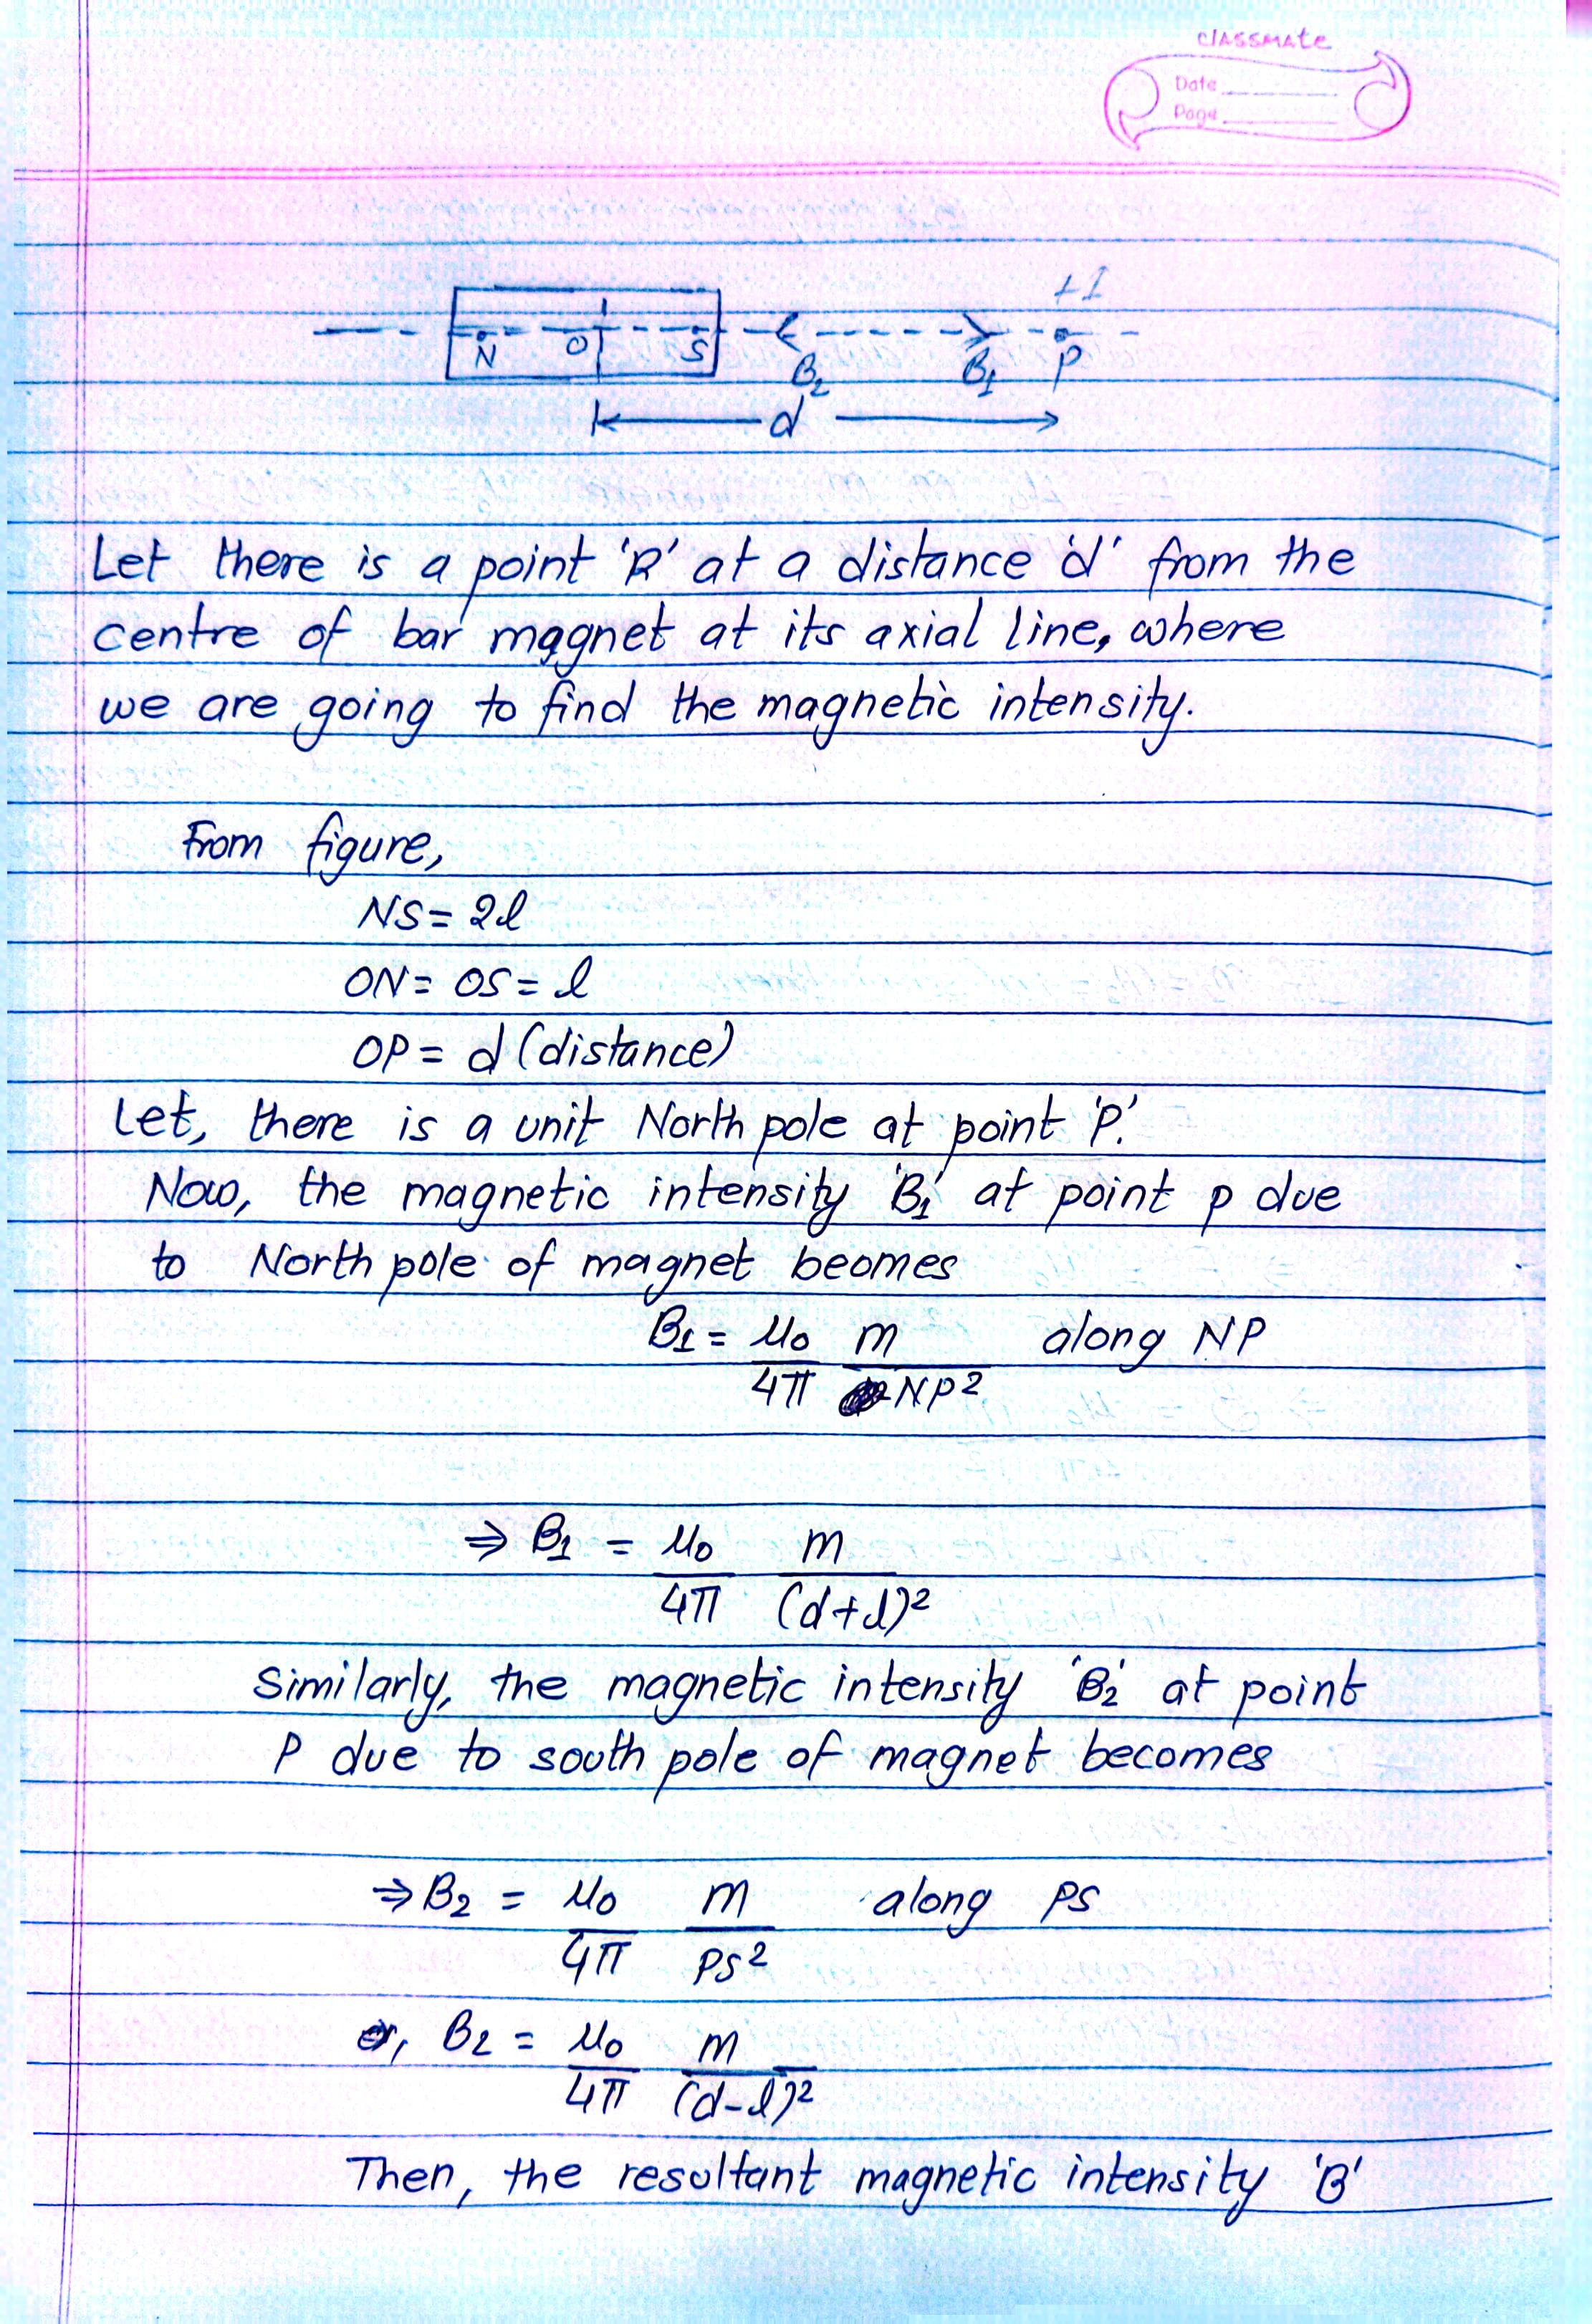 classmate
Date
Page
+1
N O S B₂ B₁ P
d
Let there is a point 'R' at a distance 'd' from the
centre of bar magnet at its axial line, where
we are going to find the magnetic intensity.
From figure,
NS = 2l
ON = OS = l
OP = d (distance)
Let, there is a unit North pole at point 'P'.
Now, the magnetic intensity 'B₁' at point p due
to North pole of magnet beomes
B₁ = μ₀/4π m/NP² along NP
⇒ B₁ = μ₀/4π m/(d+l)²
Similarly, the magnetic intensity 'B₂' at point
P due to south pole of magnet becomes
⇒ B₂ = μ₀/4π m/PS² along PS
or, B₂ = μ₀/4π m/(d-l)²
Then, the resultant magnetic intensity 'B'